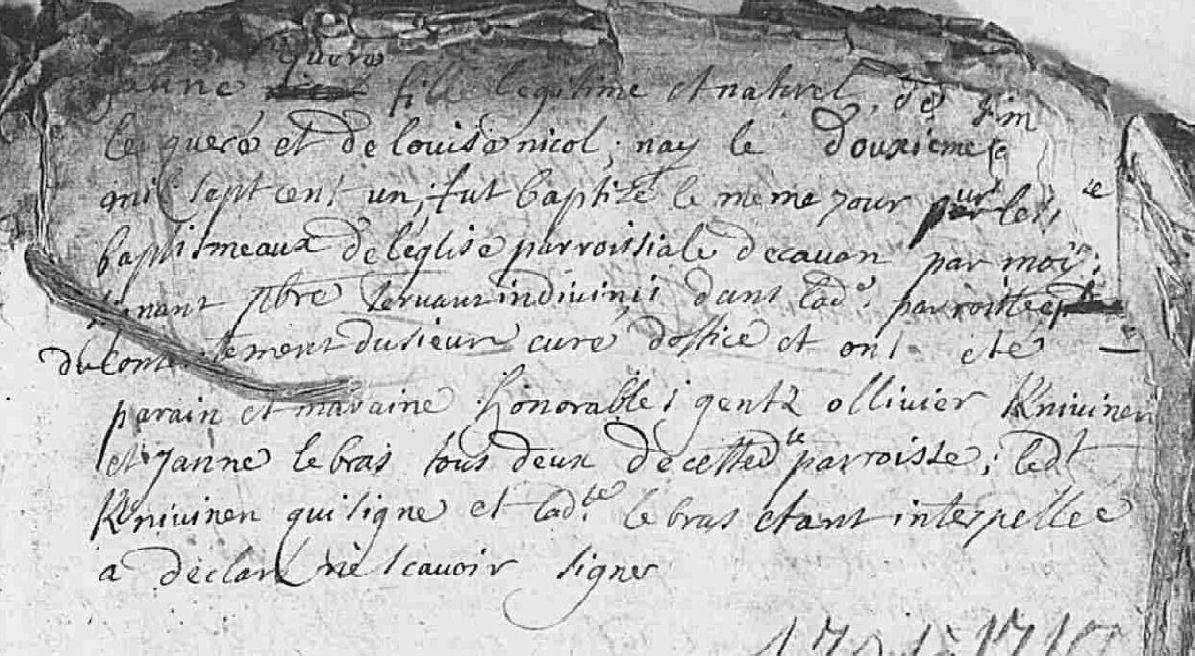 quere
janne fille legitime et naturel de
le quere et de louise nicol, nay le douxieme
mil sept cent un, fut baptizé le meme jour sur les
baptismeaux de leglise parroissiale decauan par moy
pbre servant indivinis dans lad^e. parroisse
du sieur curé doffice et ont eté
parain et maraine honorables gentz ollivier Knivinen
et janne lebras tous deux decette d^te parroisse, led^t
Knivinen qui signe et lad^te. lebras etant interpellee
a declaré ne scavoir signer